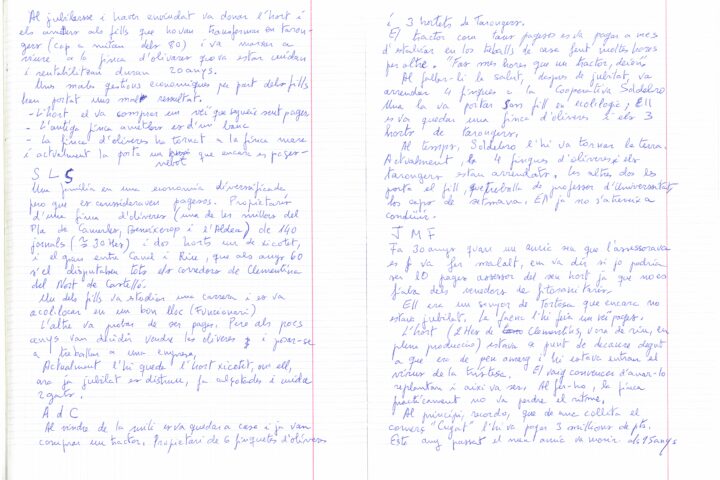 Al jubilarse i haver enviudat va donar l'hort i
els ametlers als fills que havien transformat en taron-
gers (cap a mitan dels 80) i va marxar a
viure a la finca d'olivarer que va estar cuidan
i rentabilitzan duran 20 anys.
Unes males gestions econòmiques per part dels fills
han portat uns mals resultat.
- L'hort el va comprar un veí que segueix sent pages
- L'antiga finca ametlers es d'un banc
- La finca d'oliveres ha tornat a la finca mare
i actualment la porta un nebot que encara es pages-
S L S
Una familia en una economia diversificada
pero que es consideraven pagesos. Propietaris
d'una finca d'oliveres (una de les millors del
Pla de Camarles, entre l'Aldea) de 140
jornals (≈ 30 Hes) i dos horts un de xicotet,
i el gran entre Canal i Riu, que als anys 60
s'el disputaben tots els corredors de Clementina
del Nort de Castelló.
Un dels fills va studiar una carrera i es va
acol·locar en un bon lloc (Funcionari)
L'altre va probar de ser pages. Pero als pocs
anys van decidir vendre les oliveres i posar-se
a treballar a una empresa.
Actualment l'hi queda l'hort xicotet, on ell,
ara ja jubilat es distreu, fa carxofades i cuida
2 gats.
A d C
Al vindre de la mili es va quedar a casa i ja van
comprar un tractor. Propietari de 6 finquetes d'oliveres
i 3 hortets de Tarongers.
El tractor com tans pagesos es va pagar a mes
d'estalviar en los treballs de casa fent moltes hores
per altre. "Fas mes hores que un tractor, deien
Al fallar-li la salut, despues de jubilat, va
arrendar 4 finques a la Cooperativa Soldebre
Una la va portar son fill en ecològic, Ell
es va quedar una finca d'olivers i els 3
horts de tarongers.
Al temps, Soldebre l'hi va tornar la terra.
Actualment, les 4 finques d'oliveres i els
tarongers estan arrendats, les altres dos les
porta el fill, que treballa de professor d'Universitat
los caps de setmana. Ell ja no s'atrevix a
conduir.
J M F
Fa 30 anys quan un amic seu que l'assessorava
es va fer malalt, em va dir si jo podria
ser lo pages assessor del seu hort ja que no es
fiaba dels venedors de fitosanitaris
Ell era un senyor de Tortosa que encara no
estava jubilat. La faena l'hi feia un veí pages.
L'hort (2 Hes de Clementina, vora de riu, en
plena produccio) estava a punt de decaure degut
a que era de peu amarg i hi estava entran el
virus de la tristesa. El vaig convencer d'anar-lo
replantam i aixi va ser. Al fer-ho, la finca
practicament no va perdre el ritme.
Al principi, recordo, que de una collita el
comerç "Cuñat" l'hi va pagar 3 millons de pts.
Este any passat el meu amic va morir als 95 anys